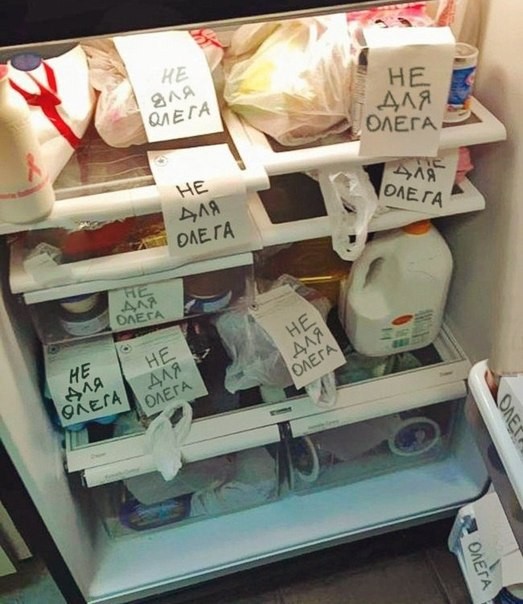 НЕ
ДЛЯ
ОЛЕГА
НЕ
ДЛЯ
ОЛЕГА
НЕ
ДЛЯ
ОЛЕГА
НЕ
ДЛЯ
ОЛЕГА
НЕ
ДЛЯ
ОЛЕГА
НЕ
ДЛЯ
ОЛЕГА
НЕ
ДЛЯ
ОЛЕГА
НЕ
ДЛЯ
ОЛЕГА
ОЛЕГА